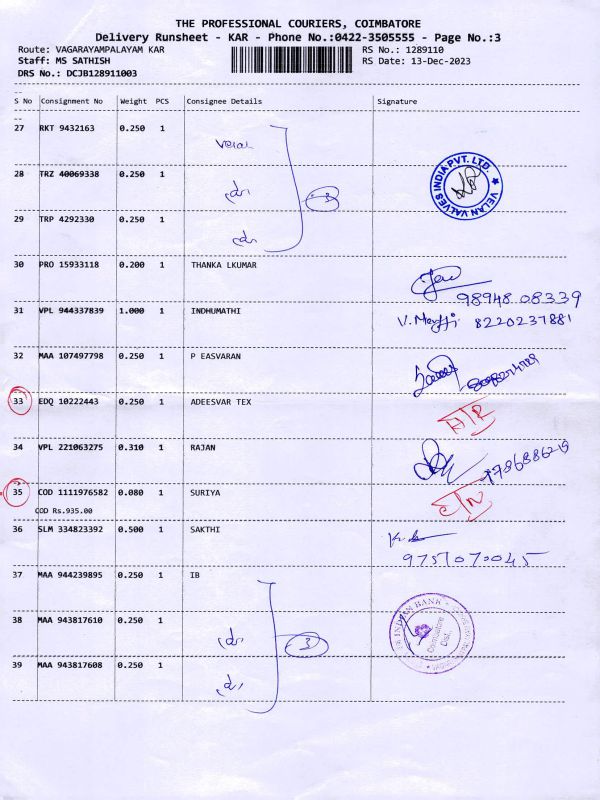 THE PROFESSIONAL COURIERS, COIMBATORE
Delivery Runsheet - KAR - Phone No.:0422-3505555 - Page No.:3
Route: VAGARAYAMPALAYAM KAR
RS No.: 1289110
Staff: MS SATHISH
RS Date: 13-Dec-2023
DRS No.: DCJB128911003
S No Consignment No Weight PCS Consignee Details Signature
27 RKT 9432163 0.250 1
28 TRZ 40069338 0.250 1
3
VELAN VALVES INDIA PVT. LTD.
29 TRP 4292330 0.250 1
30 PRO 15933118 0.200 1 THANKA LKUMAR
98948 08339
31 VPL 944337839 1.000 1 INDHUMATHI
8220237881
32 MAA 107497798 0.250 1 P EASVARAN
33 EDQ 10222443 0.250 1 ADEESVAR TEX
34 VPL 221063275 0.310 1 RAJAN
35 COD 1111976582 0.080 1 SURIYA
COD Rs.935.00
36 SLM 334823392 0.500 1 SAKTHI
9751070045
37 MAA 944239895 0.250 1 IB
38 MAA 943817610 0.250 1
3
INDIAN BANK
Coimbatore
Dist.
39 MAA 943817608 0.250 1